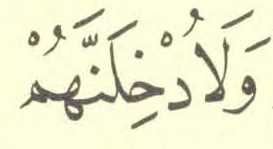 وَلَاُدْخِلَنَّهُمْ